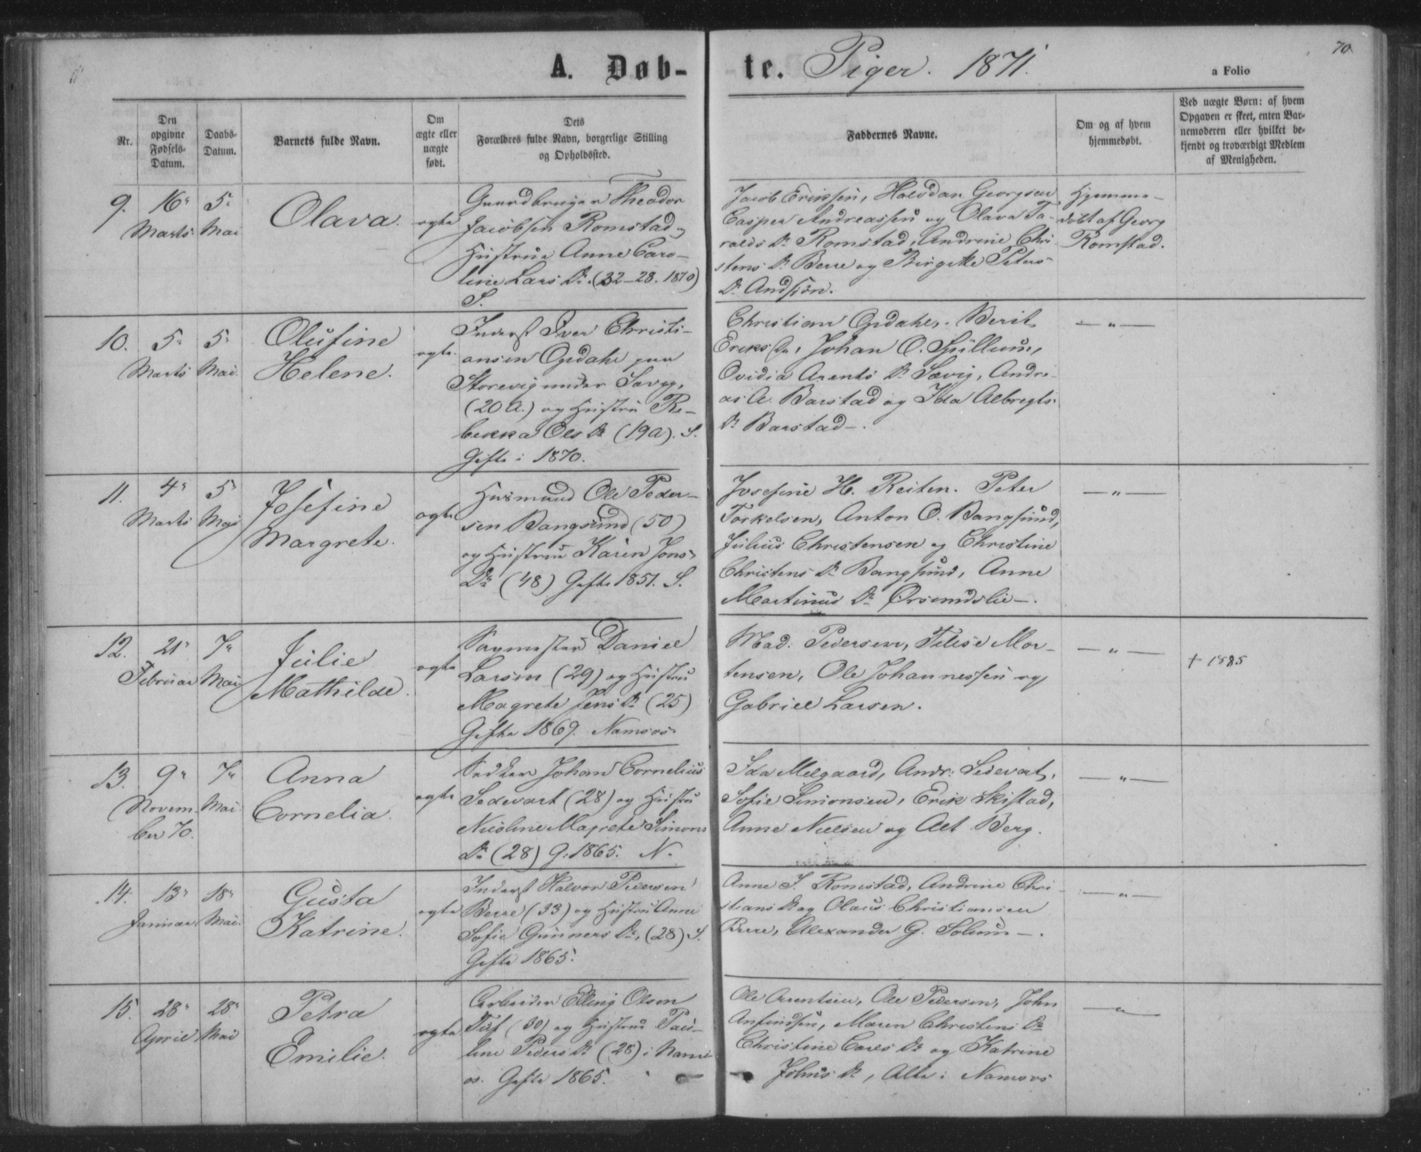 70
A. Døb-
te. Piger. 1871.
a Folio
Nr.
Den
opgivne
Fødsels-
Datum.
Daabs-
Datum.
Barnets fulde Navn.
Om
ægte eller
uægte
født.
Dets
Forældres fulde Navn, borgerlige Stilling
og Opholdssted.
Faddernes Navne.
Om og af hvem
hjemmedøbt.
Ved uægte Børn: af hvem
Opgaven er skeet, enten Bar-
nemoderen eller hvilket be-
kjendt og troværdigt Medlem
af Menigheden.
9.
16
Marts
5
Mai
Olava.
ægte
Gaardbruger Theodor
Jacobsen Romstad
Hustrue Anne Caro-
line Lars D. (32-28. 1870)
S.
Jacob Erichsen, Halvdan Georgsen
Casper Andreassen og Olava
D. Romstad, Andrine Chri
stens D. Berre og Birgitte Peters
D.
Hjemme-
døbt af Georg
Romstad.
10.
5
Marts
5
Mai
Olufine
Helene.
ægte
Inderst Iver Christi-
ansen Opdahl paa
Storevig under Savig,
(20 A.) og Hustru Re-
bekka Ols D. (19a). S.
Gifte i 1870.
Christian Opdahl. Berit
Eriks D., Johan O. Spillum,
Ovidia Arents D. Sævig, Andre-
as A. Barstad og Ida Albregts
D. Barstad.
— " —
11.
4
Marts
5
Mai
Josefine
Margrete.
ægte
Husmand Ole Peder-
sen Bangsund (50)
og Hustrue Karen Jons
D. (48) Gifte 1851. S.
Josefine H. Reiten. Peter
Torkelsen, Anton O. Bangsund,
Julius Christensen og Christine
Christens D. Bangsund, Anne
Martinus D.
— " —
12.
21
Februar
7
Mai
Julie
Mathilde.
ægte
Daniel
Larsen (29) og Hustru
Magrete Jens D. (25)
Gifte 1869. Namsos
Mad. Pedersen, Mor-
tensen, Ole Johannessen og
Gabriel Larsen.
— " —
† 1885
13.
9
Novem
ber 70.
7
Mai
Anna
Cornelia.
ægte
Johan Cornelius
Sedevart (28) og Hustru
Nicoline Magrete Simons
D. (28) G. 1865. N.
Ida Melgaard, Andr. Sedevart,
Sofie Simonsen, Erik Skistad,
Anne Nielsen og Alet Berg.
— " —
14.
13
Januar
18
Mai
Gusta
Katrine.
ægte
Inderst Halvor Pedersen
Berre (33) og Hustru Anne
Sofie Gunners D., (28) S.
Gifte 1865.
Anne J. Romstad, Andrine Chri-
stians D. og Olaus Christiansen
Berre, Alexander G. Solum.
— " —
15.
28
April
28
Mai
Petra
Emilie.
ægte
Arbeider Elling Olsen
(30) og Hustrue Pau-
line Peders D. (28) i Nams-
os. Gifte 1865.
Ole Arentsen, Ole Pedersen, John
Arfindsen, Maren Christens D.
Christine Carls D. og Katrine
Johns D., Alle i Namsos
— " —